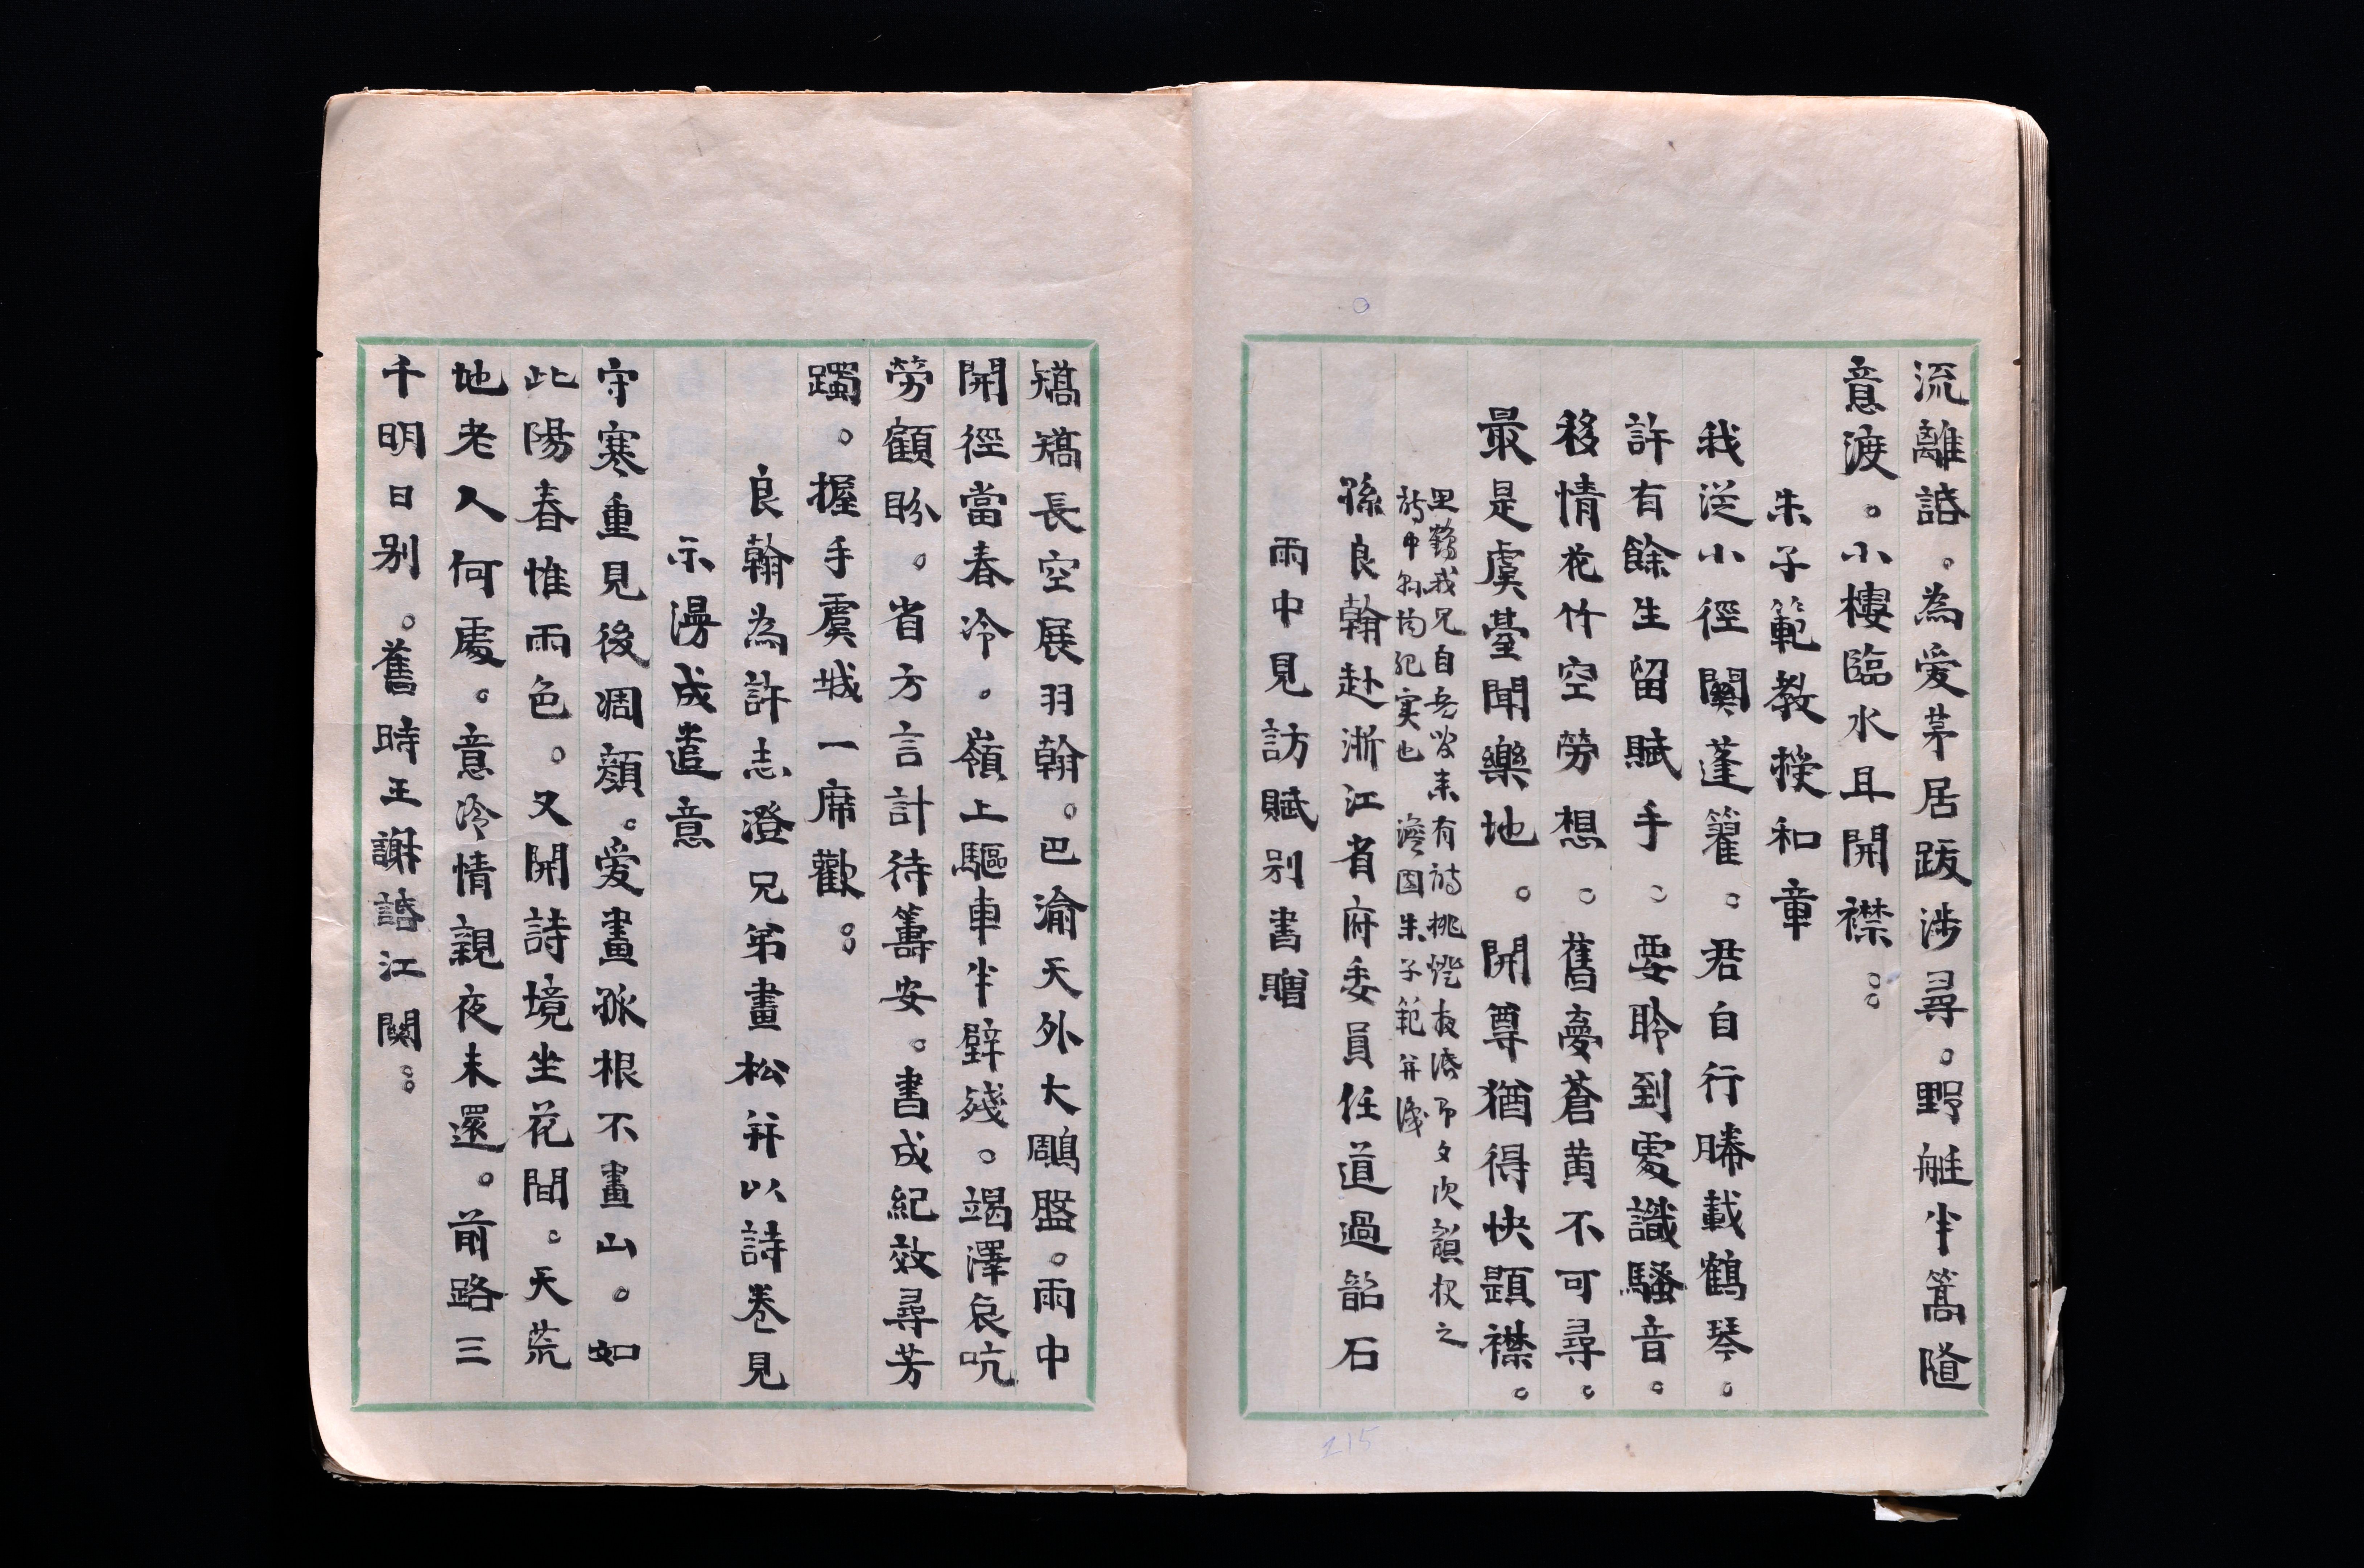 流離諳。為愛茅居跋涉尋。野艇半篙隨
意渡。小樓臨水且開襟。。
朱子範教授和章
我從小徑闢蓬籬。君自行勝載鶴琴。
許有餘生留賦手。要聆到處識騷音。
移情花竹空勞想。舊夢蒼黃不可尋。
最是虞臺聞樂地。開尊猶得快題襟。
里鶴我兄自岳嶺來有詩挑燈夜話即夕次韻報之
詩中 均紀實也 澹園朱子範并識
孫良翰赴浙江省府委員任道過韶石
雨中見訪賦別書贈
矯矯長空展羽翰。巴渝天外大鵰盤。雨中
開徑當春冷。嶺上驅車半壁殘。竭澤哀吭
勞顧盼。省方言計待籌安。書成紀效尋芳
躅。握手虞城一席歡。。
良翰為許志澄兄弟畫松并以詩卷見
示漫成遣意
守寒重見後凋顏。愛畫孤根不畫山。如
此陽春惟雨色。又開詩境坐花間。天荒
地老人何處。意冷情親夜未還。前路三
千明日別。舊時王謝諳江關。。
215